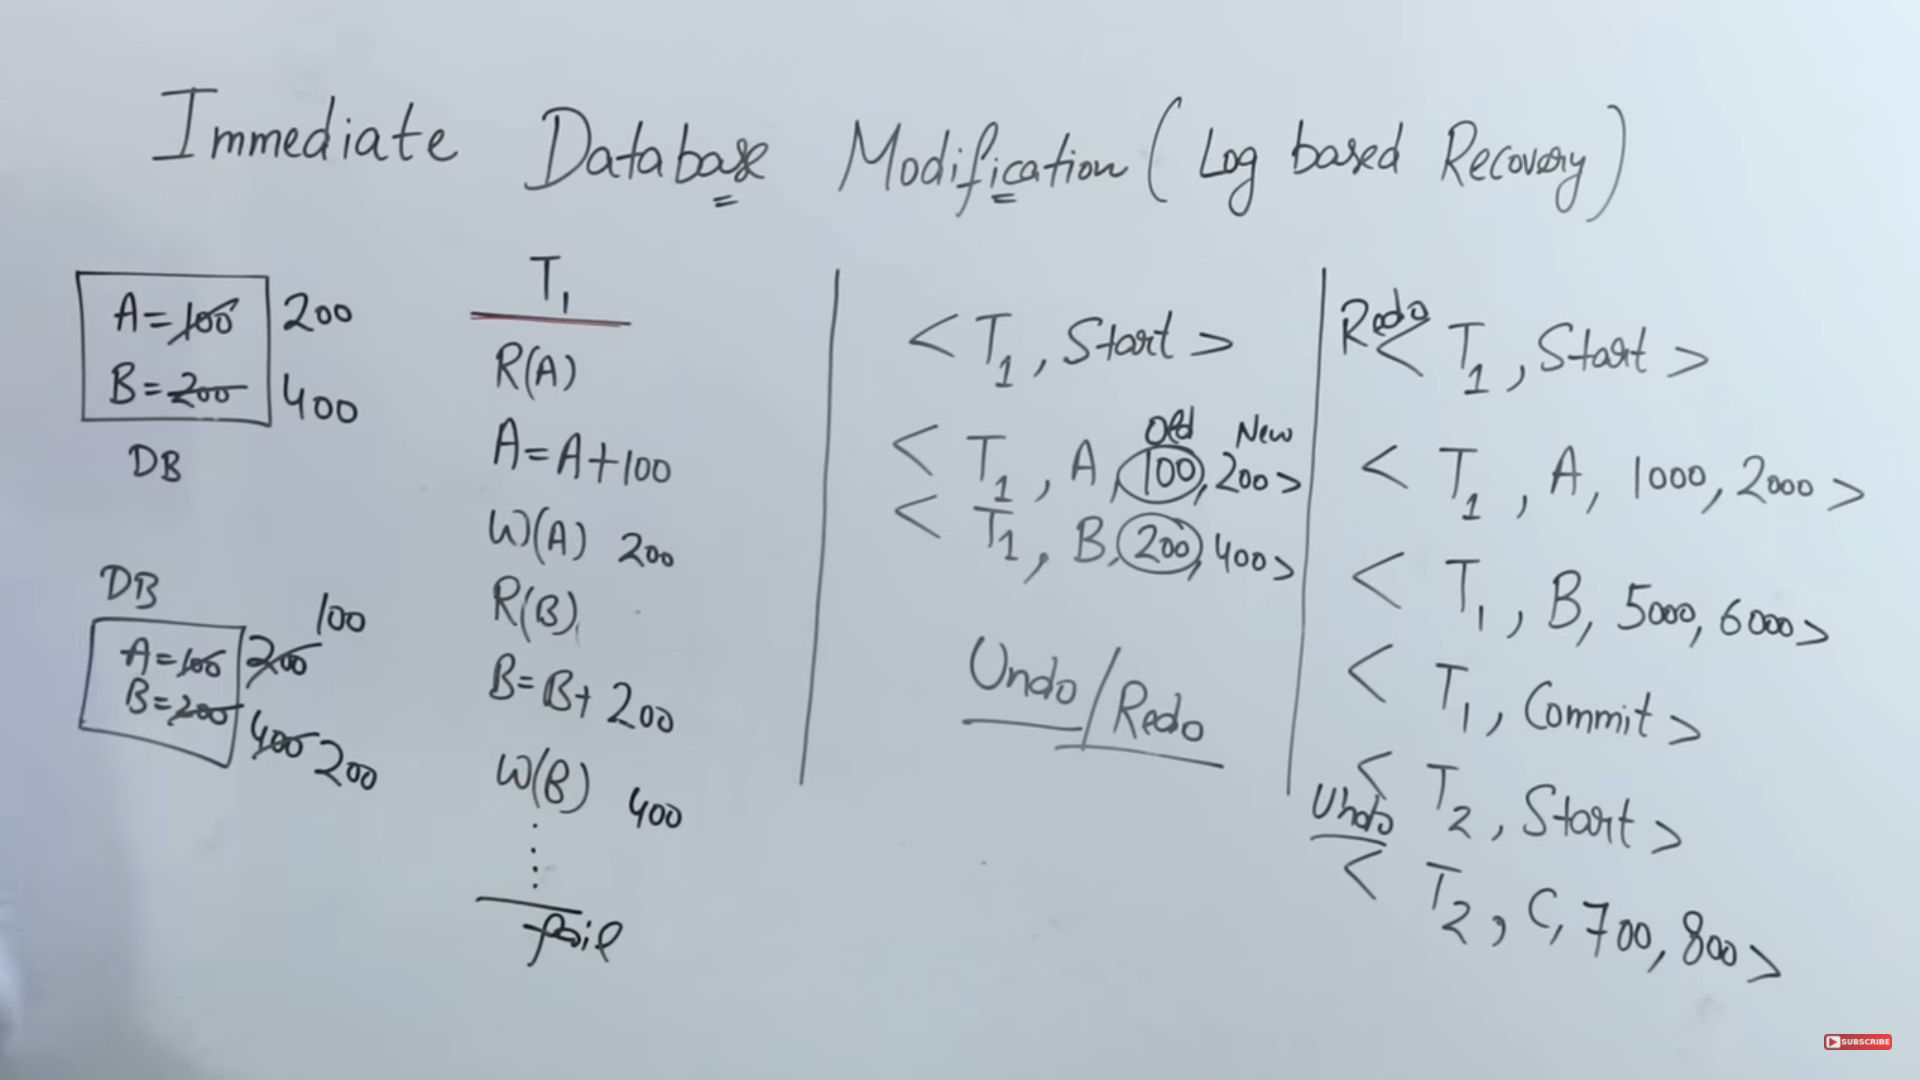 Immediate Database Modification (Log based Recovery)
A=100 200
B=200 400
DB
DB
100
A=100 200
B=200 400 200
T1
R(A)
A=A+100
W(A) 200
R(B)
B=B+200
W(B) 400
fail
<T1, Start>
Old New
<T1, A, 100, 200>
<T1, B, 200, 400>
Undo/Redo
Redo
<T1, Start>
<T1, A, 1000, 2000>
<T1, B, 5000, 6000>
<T1, Commit>
<T2, Start>
Undo
<T2, C, 700, 800>
SUBSCRIBE